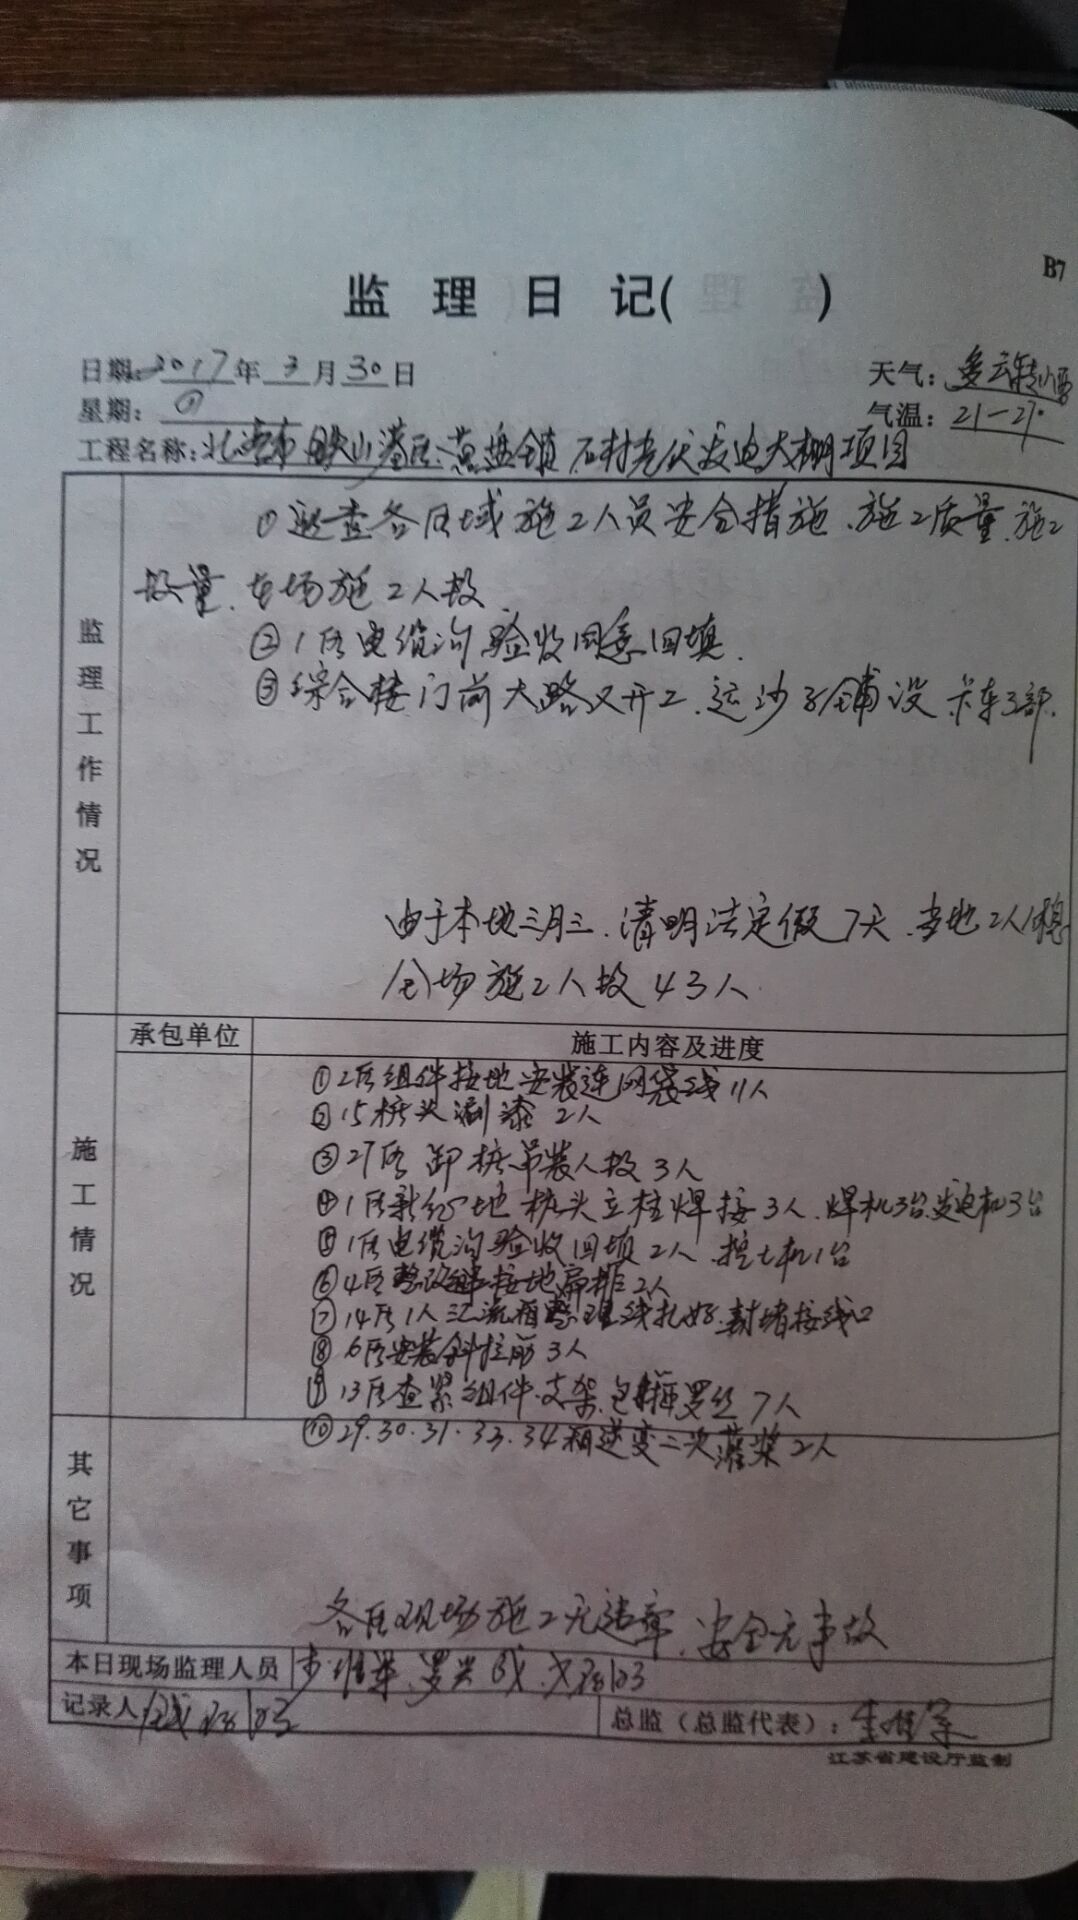 B7
监理日记( )
日期: 2017年 3月 30日
天气: 多云转小雨
星期: 四
气温: 21-27°
工程名称: 北海市铁山港区 石村光伏发电大棚项目
监理工作情况
① 巡查各区域施工人员安全措施、施工质量、施工
数量、在场施工人数
② 1区电缆沟验收同意回填.
③ 综合楼门前大路又开工、运沙子铺设 卡车3部.
由于本地三月三、清明法定假7天、当地工人休息
全场施工人数43人
承包单位
施工内容及进度
施工情况
① 2区组件接地安装连 线11人
② 15桩头涮漆 2人
③ 27区卸桩吊装人数3人
④ 1区新 地桩头立柱焊接3人、焊机3台、发电机3台
⑤ 1区电缆沟验收回填2人、挖土机1台
⑥ 4区整改 接地扁排2人
⑦ 14区1人汇流箱整理线扎好、封堵接线口
⑧ 6区安装斜拉筋3人
⑨ 13区查紧组件、支架、包 罗丝7人
⑩ 29.30.31.33.34箱逆变二次灌浆2人
其它事项
各区现场施工无违章、安全无事故
本日现场监理人员
记录人
总监（总监代表）:
江苏省建设厅监制